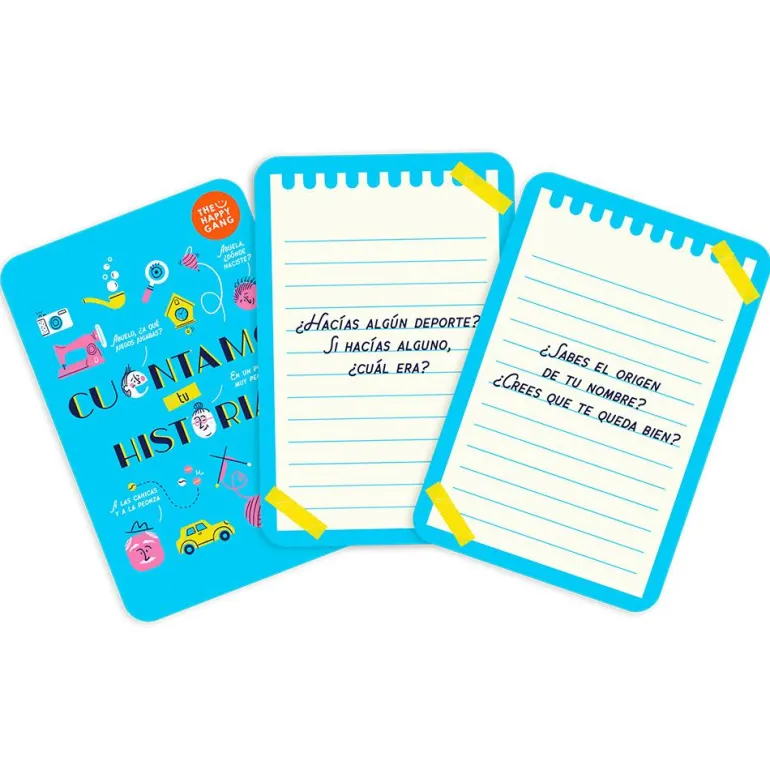 THE
HAPPY
GANG
ABUELA,
¿DÓNDE
NACISTE?
ABUELO, ¿A QUÉ
JUEGOS JUGABAS?
tu
HISTORIA
EN UN
MUY
A LAS CANICAS
Y A LA PEONZA
¿HACÍAS ALGÚN DEPORTE?
SI HACÍAS ALGUNO,
¿CUÁL ERA?
¿SABES EL ORIGEN
DE TU NOMBRE?
¿CREES QUE TE QUEDA BIEN?